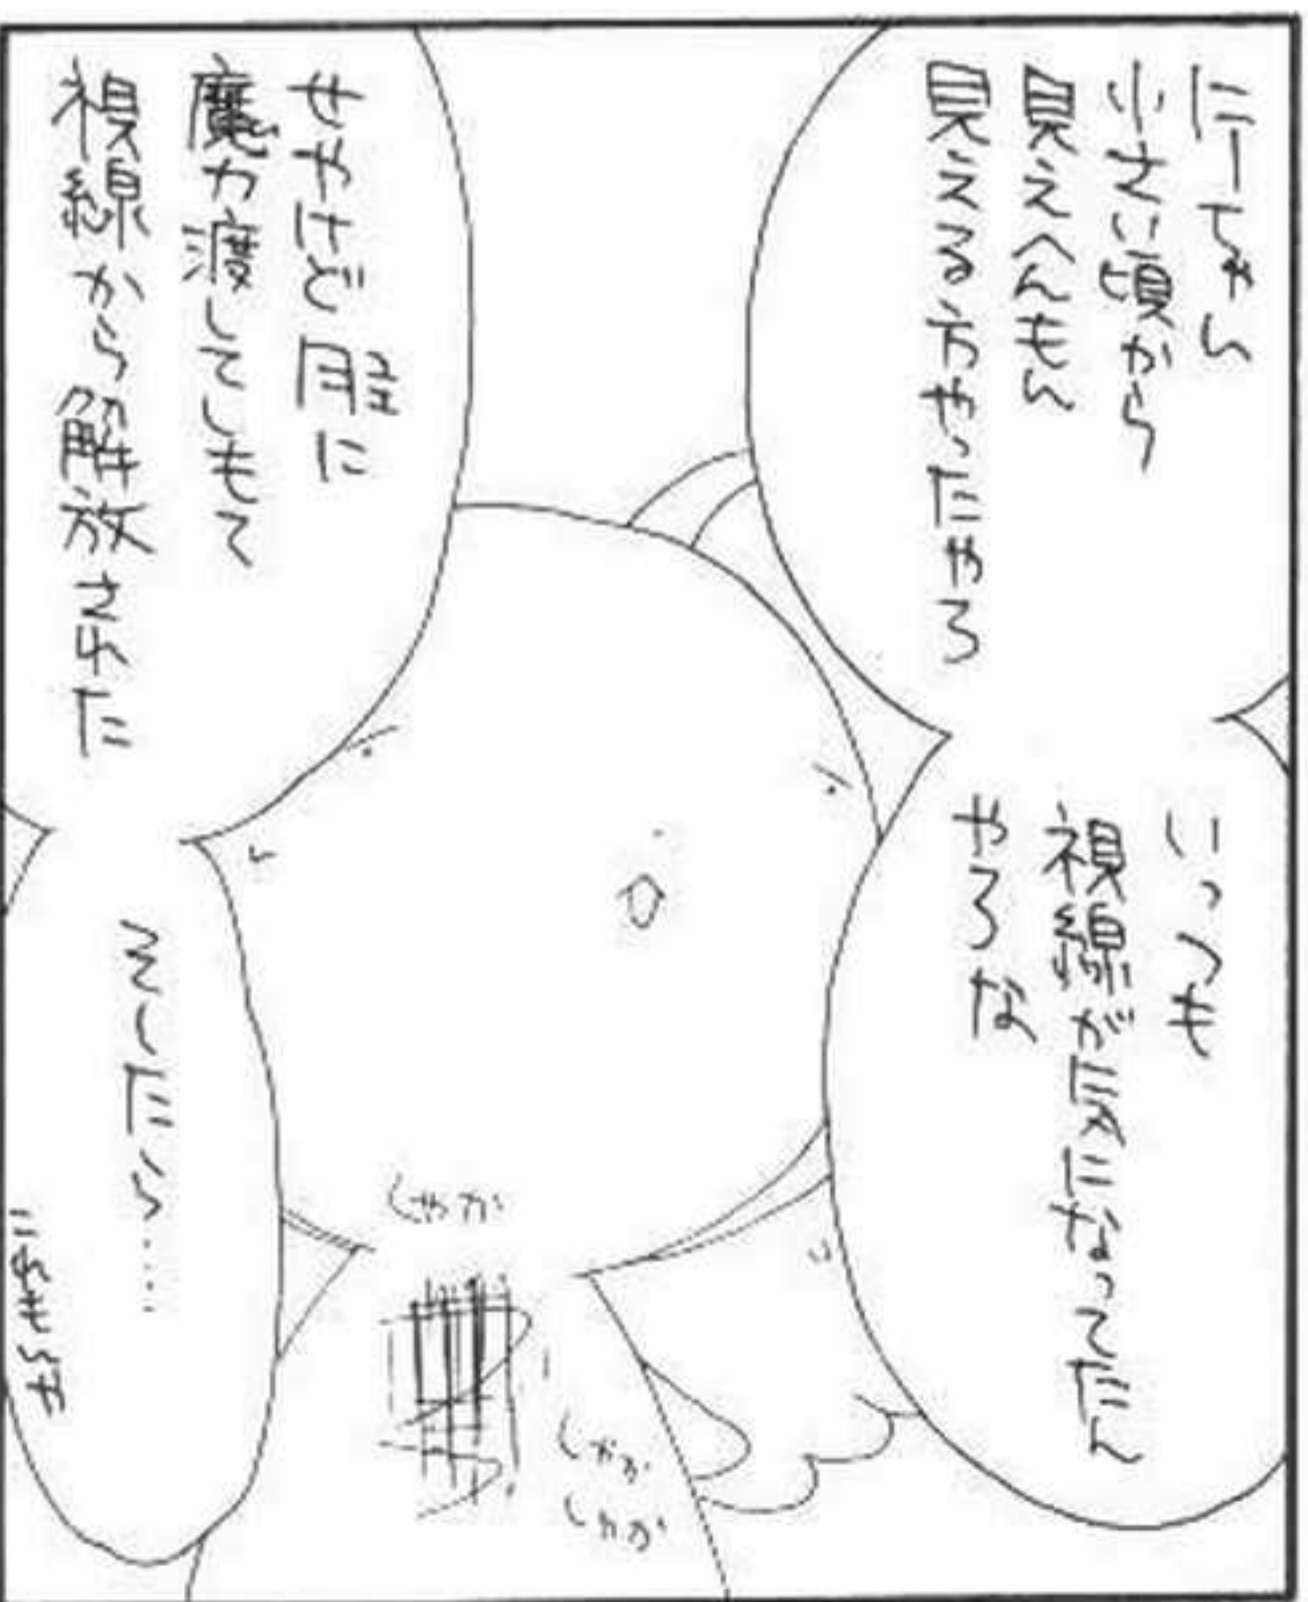 にーちゃん
小さい頃から
見えへんもん
見える方やったやろ
いっつも
視線が気になってたん
やろな
せやけど 雎に
魔力渡してしもて
視線から解放された
みーたん……
しゃか
しゃか
しゃか